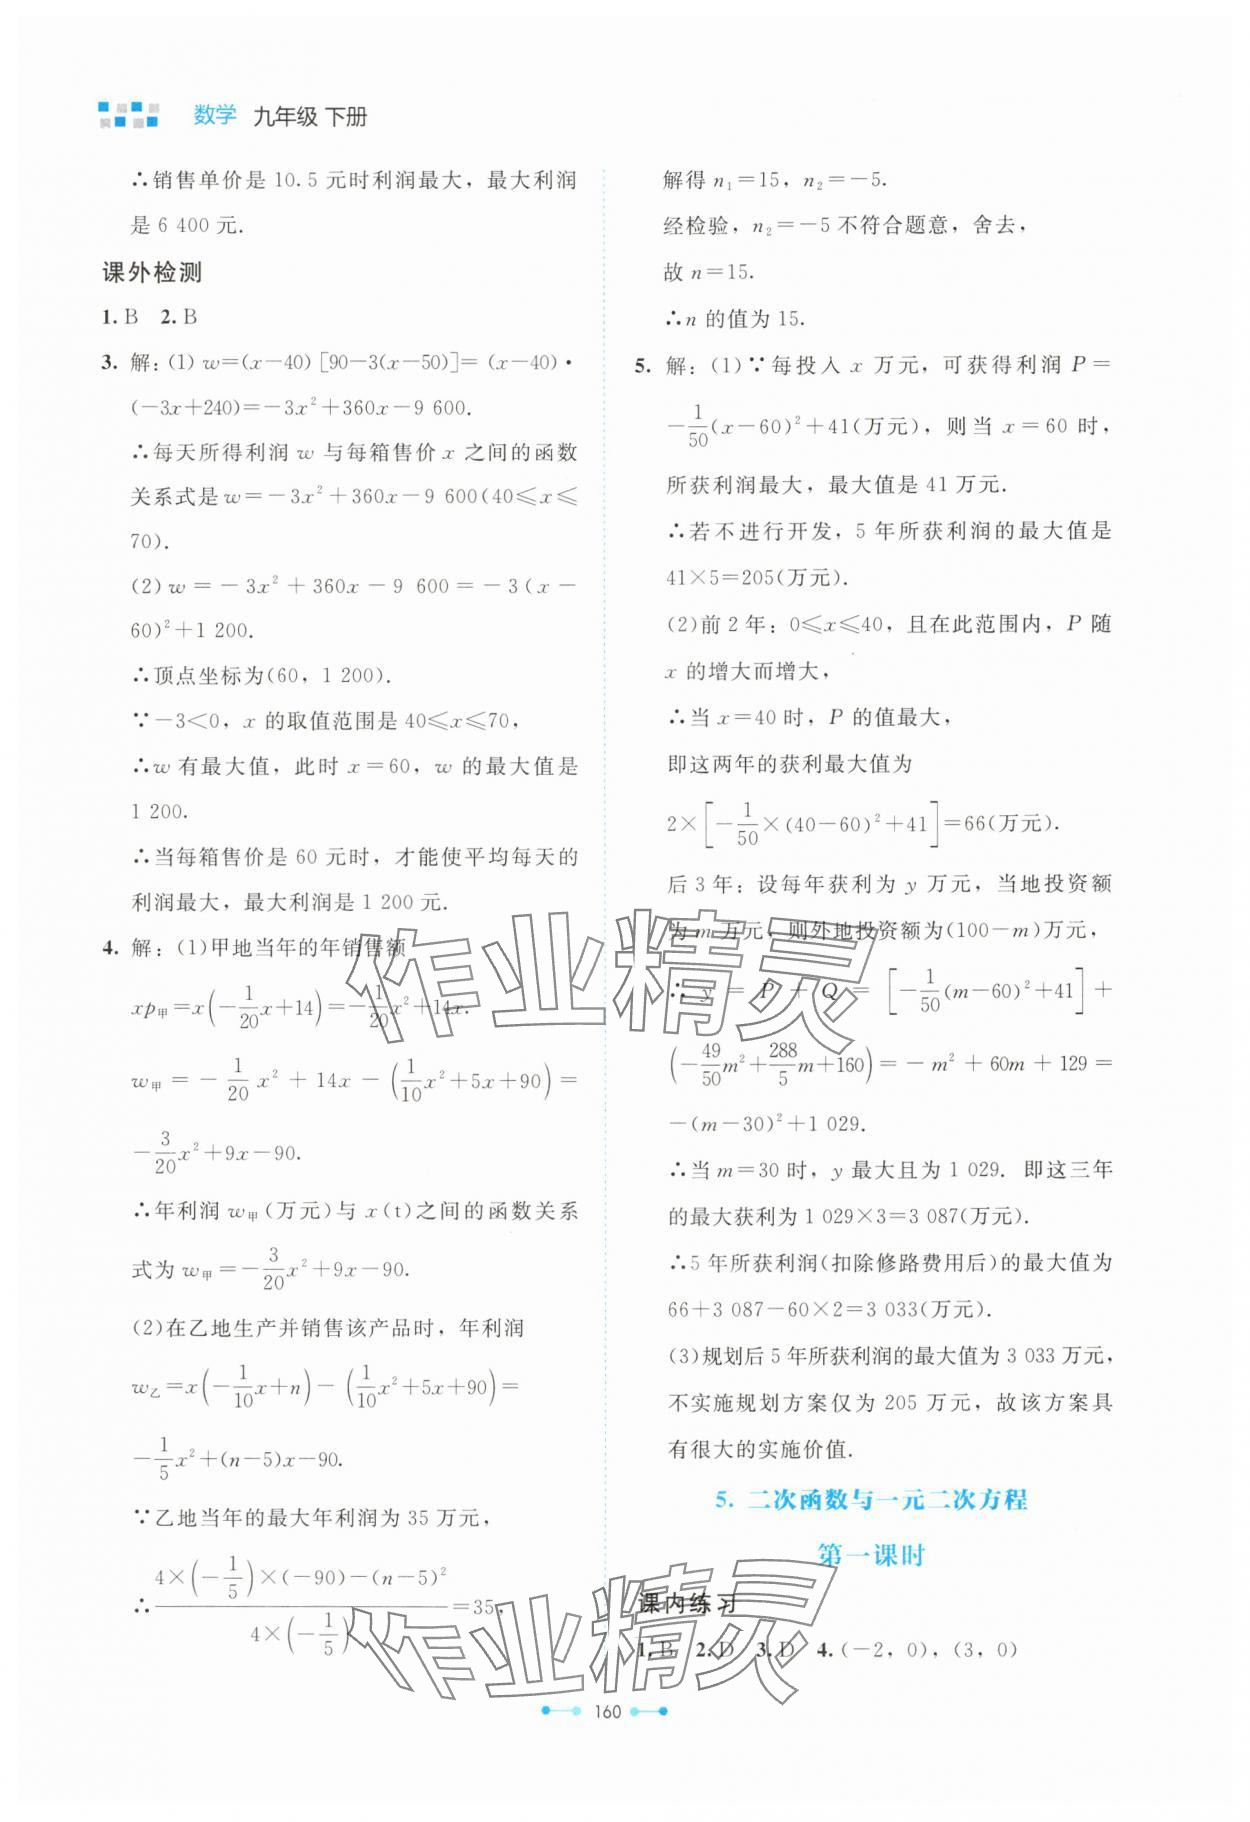 数学 九年级 下册
∴销售单价是 10.5 元时利润最大，最大利润
是 6 400 元.
课外检测
1. B 2. B
3. 解：(1) w=(x-40) [90-3(x-50)]= (x-40)·
(-3x+240)=-3x²+360x-9 600.
∴每天所得利润 w 与每箱售价 x 之间的函数
关系式是 w=-3x²+360x-9 600(40≤x≤
70).
(2) w=-3x²+360x-9 600=-3(x-
60)²+1 200.
∴顶点坐标为(60，1 200).
∵-3<0，x 的取值范围是 40≤x≤70，
∴w 有最大值，此时 x=60，w 的最大值是
1 200.
∴当每箱售价是 60 元时，才能使平均每天的
利润最大，最大利润是 1 200 元.
4. 解：(1)甲地当年的年销售额
xp甲=x(-1/20x+14)=-1/20x²+14x.
w甲=-1/20x²+14x-(1/10x²+5x+90)=
-3/20x²+9x-90.
∴年利润 w甲(万元)与 x(t)之间的函数关系
式为 w甲=-3/20x²+9x-90.
(2)在乙地生产并销售该产品时，年利润
w乙=x(-1/10x+n)-(1/10x²+5x+90)=
-1/5x²+(n-5)x-90.
∵乙地当年的最大年利润为 35 万元，
∴[4×(-1/5)×(-90)-(n-5)²]/[4×(-1/5)]=35，
解得 n₁=15，n₂=-5.
经检验，n₂=-5 不符合题意，舍去，
故 n=15.
∴n 的值为 15.
5. 解：(1)∵每投入 x 万元，可获得利润 P=
-1/50(x-60)²+41(万元)，则当 x=60 时，
所获利润最大，最大值是 41 万元.
∴若不进行开发，5 年所获利润的最大值是
41×5=205(万元).
(2)前 2 年：0≤x≤40，且在此范围内，P 随
x 的增大而增大，
∴当 x=40 时，P 的值最大，
即这两年的获利最大值为
2×[-1/50×(40-60)²+41]=66(万元).
后 3 年：设每年获利为 y 万元，当地投资额
为 m 万元，则外地投资额为(100-m)万元，
∴y=P+Q=[-1/50(m-60)²+41]+
(-49/50m²+288/5m+160)=-m²+60m+129=
-(m-30)²+1 029.
∴当 m=30 时，y 最大且为 1 029. 即这三年
的最大获利为 1 029×3=3 087(万元).
∴5 年所获利润(扣除修路费用后)的最大值为
66+3 087-60×2=3 033(万元).
(3)规划后 5 年所获利润的最大值为 3 033万元，
不实施规划方案仅为 205 万元，故该方案具
有很大的实施价值.
5. 二次函数与一元二次方程
第一课时
课内练习
1. B 2. D 3. D 4. (-2，0)，(3，0)
160
作业精灵
作业精灵